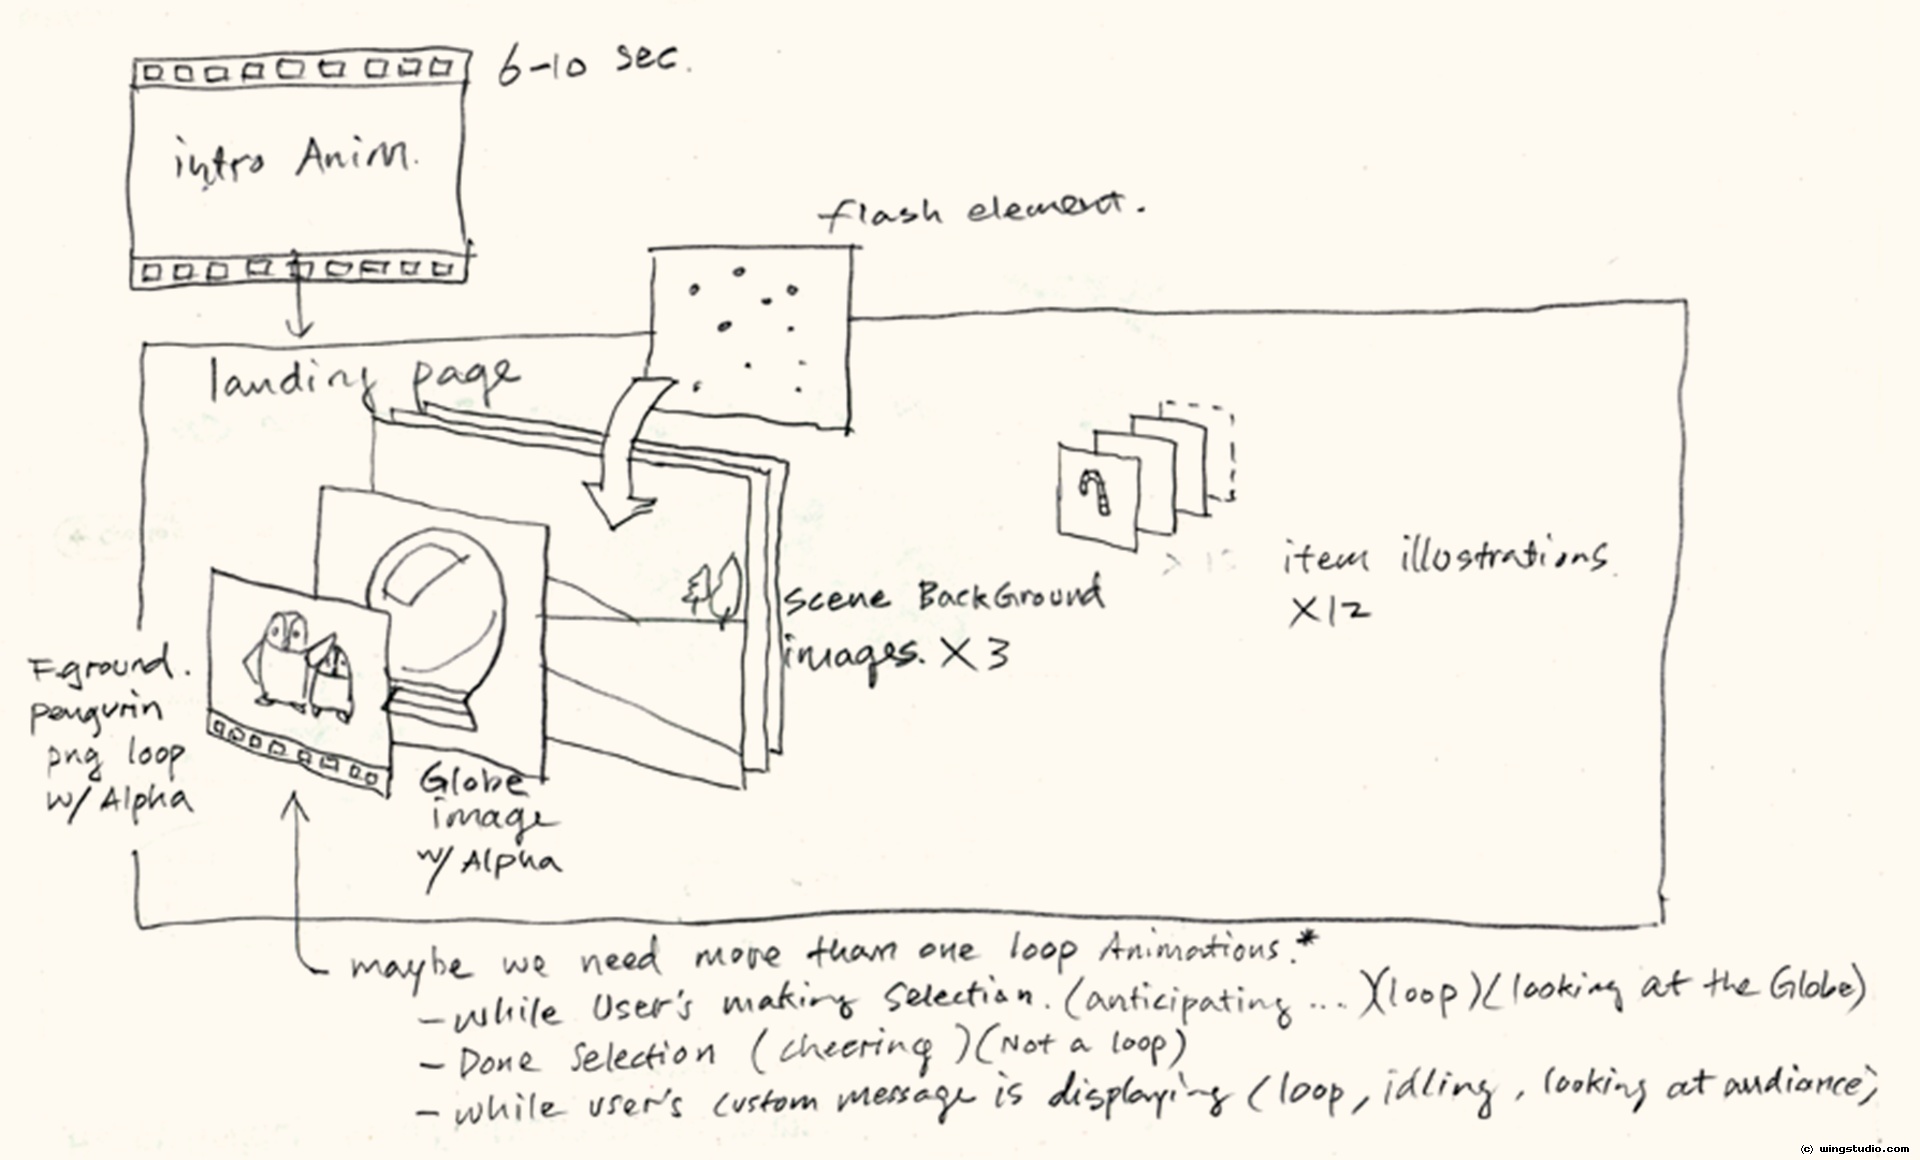 6-10 sec.
intro Anim.
flash element.
landing page
Scene BackGround
images. X 3
item illustrations
X12
F.ground.
penguin
png loop
w/ Alpha
Globe
image
w/ Alpha
maybe we need more than one loop Animations.*
- while User's making Selection. (anticipating ... )(loop)(looking at the Globe)
- Done Selection (cheering)(Not a loop)
- while user's custom message is displaying (loop, idling, looking at audiance)
(c) wingstudio.com